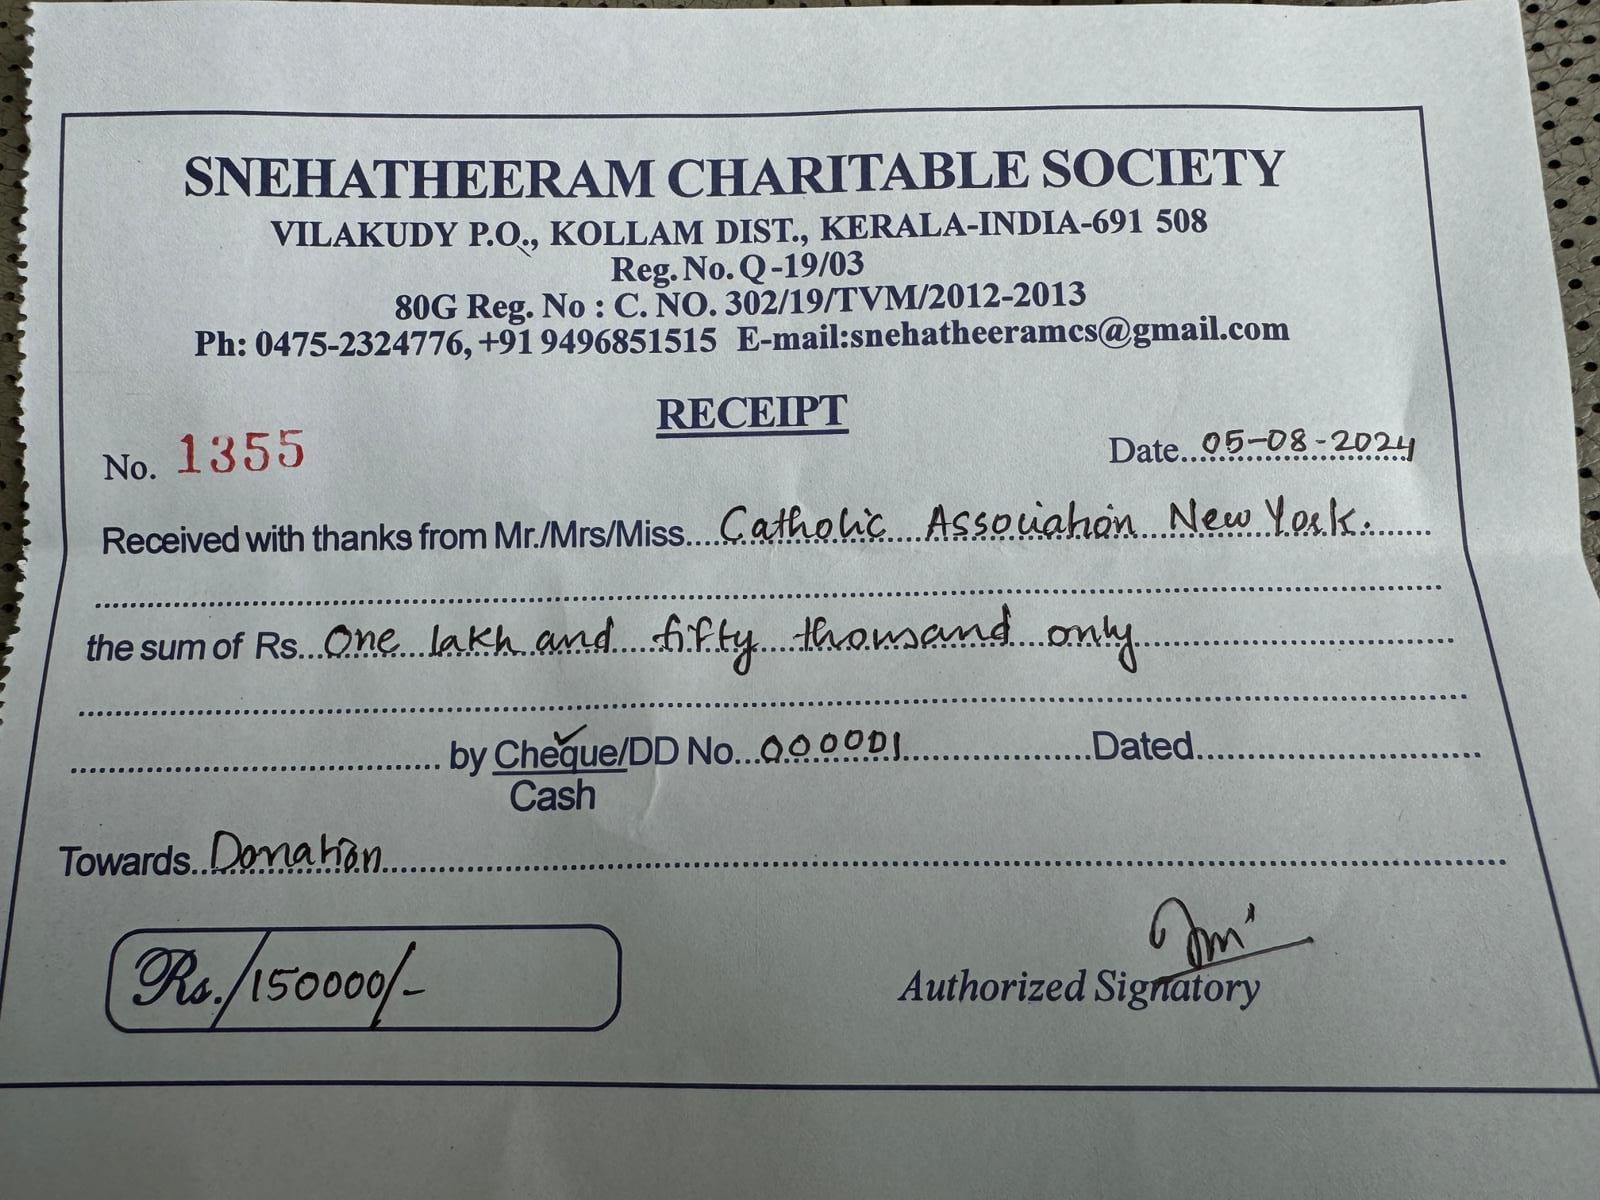 SNEHATHEERAM CHARITABLE SOCIETY
VILAKUDY P.O., KOLLAM DIST., KERALA-INDIA-691 508
Reg. No. Q-19/03
80G Reg. No : C. NO. 302/19/TVM/2012-2013
Ph: 0475-2324776, +91 9496851515 E-mail:snehatheeramcs@gmail.com
RECEIPT
No. 1355 Date 05-08-2024
Received with thanks from Mr./Mrs/Miss Catholic Association New York.
the sum of Rs One lakh and fifty thousand only
by Cheque/DD No 000001 Dated
Cash
Towards Donation
Rs./150000/-
Authorized Signatory